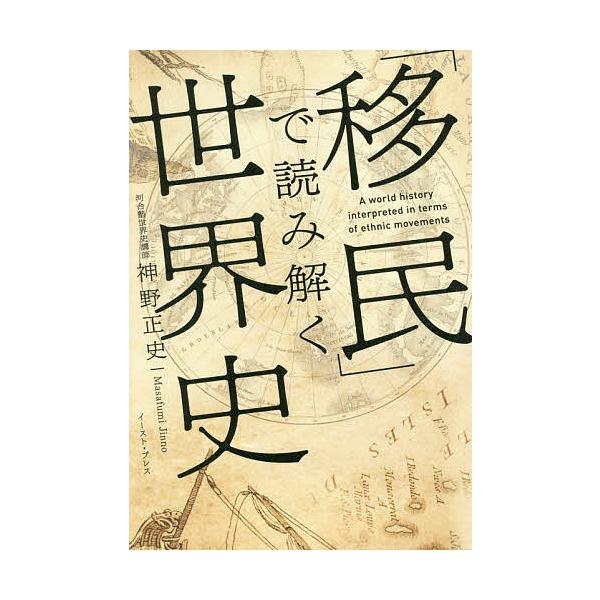 「移民」
で読み解く
世界史
A world history
interpreted in terms
of ethnic movements
河合塾世界史講師
神野正史
Masafumi Jinno
イースト・プレス
I.Redondo
Monserrat